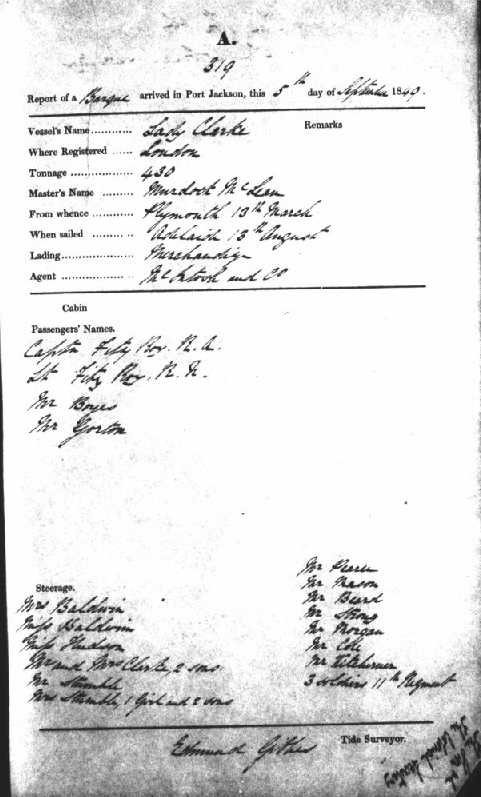 A.
319
Report of a Barque arrived in Port Jackson, this 5th day of September 1849.
Vessel's Name............ Lady Clerke Remarks
Where Registered ...... London
Tonnage .................. 430
Master's Name ......... Murdock McLean
From whence ............ Plymouth 13th March
When sailed ............ Adelaide 13th August
Lading..................... Merchandize
Agent ..................... McIntosh and Co
Cabin
Passengers' Names.
Captn Fitz Roy. R. A.
Lt Fitz Roy. R. N.
Mr Boyes
Mr Gorton
Steerage.
Mrs Baldwin
Miss Baldwin
Miss Hudson
Mr and Mrs Clerke, 2 sons
Mr Stumble
Mrs Stumble, 1 Girl and 2 sons
Mr
Mr Nason
Mr Beard
Mr Strong
Mr Morgan
Mr Cole
Mr
3 soldiers 11th Regiment
Edmund Tide Surveyor.